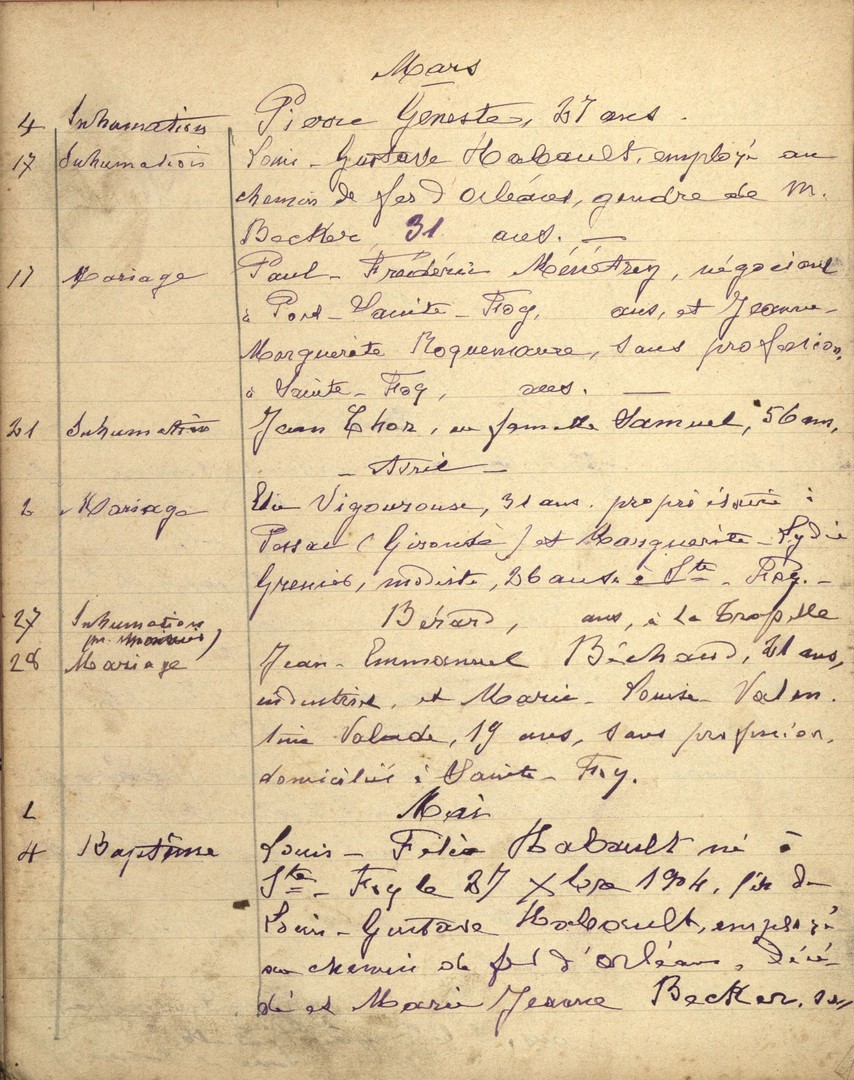 Mars
4 Inhumation Pierre Geneste, 27 ans.
17 Inhumation Louis-Gustave Habault, employé au
chemin de fer d'Orléans, gendre de M.
Becker, 31 ans. —
17 Mariage Paul-Frédéric Ménétrey, négociant
à Port-Sainte-Foy, ans, et Jeanne-
Marguerite Roquemaure, sans profession,
à Sainte-Foy, ans. —
21 Inhumation Jean Thor, en famille Samuel, 56 ans,
- Avril -
2 Mariage Elie Vigourouse, 31 ans. propriétaire à
Pessac (Gironde) et Marguerite-Lydie
Grenier, modiste, 26 ans. à Ste-Foy.-
27 Inhumation Bérard, ans, à La
(par )
28 Mariage Jean-Emmanuel Béchaud, 21 ans,
industriel, et Marie-Louise Valen-
tine Valade, 19 ans, sans profession,
domicilié à Sainte-Foy.
Mai
4 Baptême Louis-Félix Habault né à
Ste-Foy le 27 Xbre 1904, fils de
Louis-Gustave Habault, employé
au chemin de fer d'Orléans, décé-
dé et Marie Jeanne Becker,